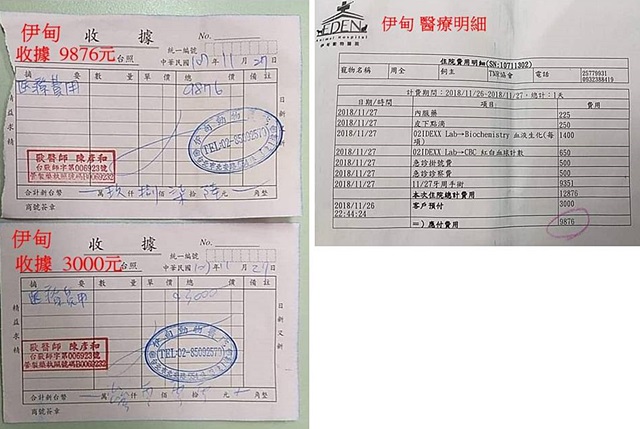 伊甸
收據 9876元
收 據
No.
統一編號
台照
中華民國107年11月27日
摘 要 數 量 單 價 總 價 備 註
醫療費用 9876
伊甸動物醫
TEL:02-85092579
獸醫師 陳彥和
台獸師字第006923號
管製藥執照號碼B0069232
合計新台幣 萬 玖仟 捌佰 柒拾 陸元 角整
商號簽章
伊甸
收據 3000元
收 據
No.
統一編號
台照
中華民國107年11月
摘 要 數 量 單 價 總 價 備 註
醫療費用 3000
伊甸動物醫
TEL:02-85092579
獸醫師 陳彥和
台獸師字第006923號
管製藥執照號碼B0069232
合計新台幣 萬 仟 佰 拾 元 角整
商號簽章
伊甸 醫療明細
EDEN
Animal Hospital
伊甸動物醫院
住院費用明細(SN:10711302)
寵物名稱 周全 飼主 TNR協會 電話 25779931
0932388419
計費期間：2018/11/26~2018/11/27，總計：1天
日期/時間 項目 費用
2018/11/27 內服藥 225
2018/11/27 皮下點滴 250
2018/11/27 02IDEXX Lab→Biochemistry 血液生化(每項) 1400
2018/11/27 02IDEXX Lab→CBC 紅白血球計數 650
2018/11/27 急診掛號費 500
2018/11/27 急診診察費 500
2018/11/27 11/27牙周手術 9351
本次住院總計費用 12876
2018/11/26 22:44:24 客戶預付 3000
=）應付費用 9876